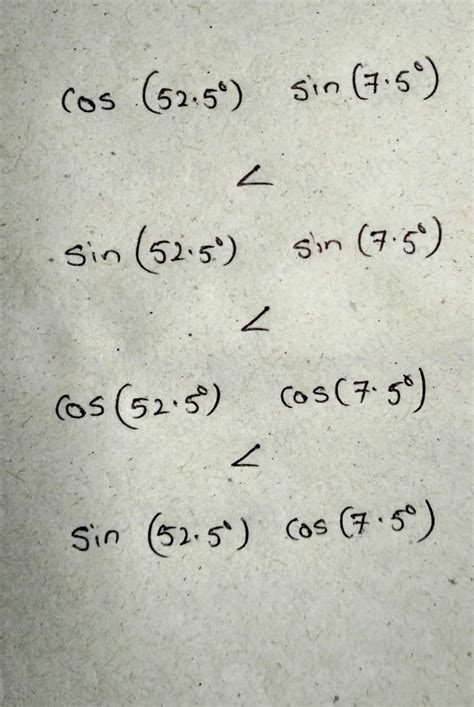 cos (52.5°) sin (7.5°)
<
sin (52.5°) sin (7.5°)
<
cos (52.5°) cos (7.5°)
<
sin (52.5°) cos (7.5°)